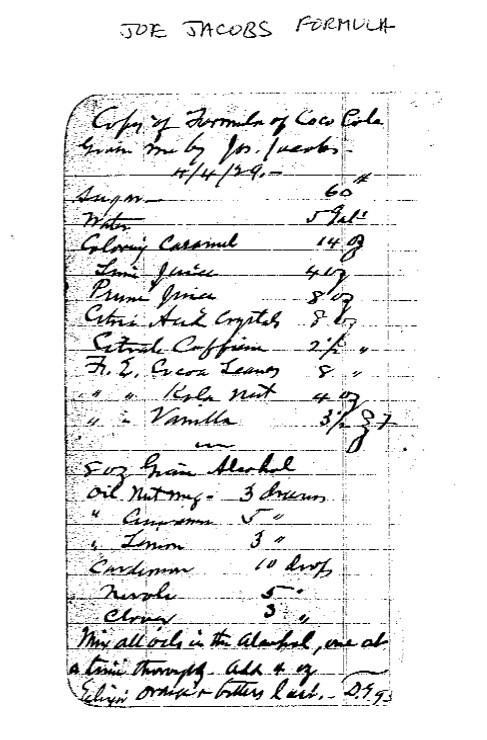 JOE JACOBS FORMULA
Copy of Formula of Coco Cola
Given me by Jos. Jacobs-
4/4/29.-
Sugar 60#
Water 5 Gals
Coloring Caramel 14 oz
Lime Juice 4 oz
Prune Juice 8 oz
Citric Acid Crystals 8 oz
Citrate Caffein 2 1/2 "
Fl. E. Cocoa Leaves 8 "
" " Kola Nut 4 oz
" " Vanilla 3 1/2
in
8 oz Grain Alcohol
Oil Nutmeg - 3 drams
" Cinnamon 5 "
" Lemon 3 "
Cardimon 10 drops
Neroli 5 "
Clover 3 "
Mix all oils in the Alcohol, one at
a time thoroughly. Add 4 oz
Elixir orange bitters last.